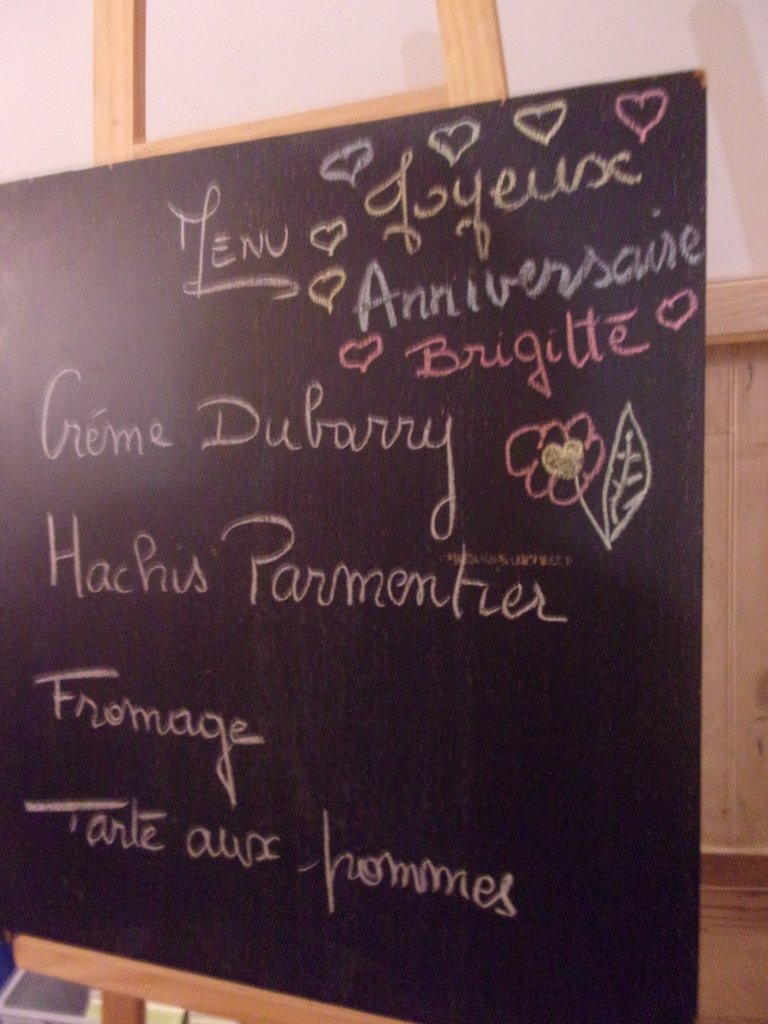 Menu
Joyeux
Anniversaire
Brigitte
Créme Dubarry
Hachis Parmentier
Fromage
Tarte aux pommes